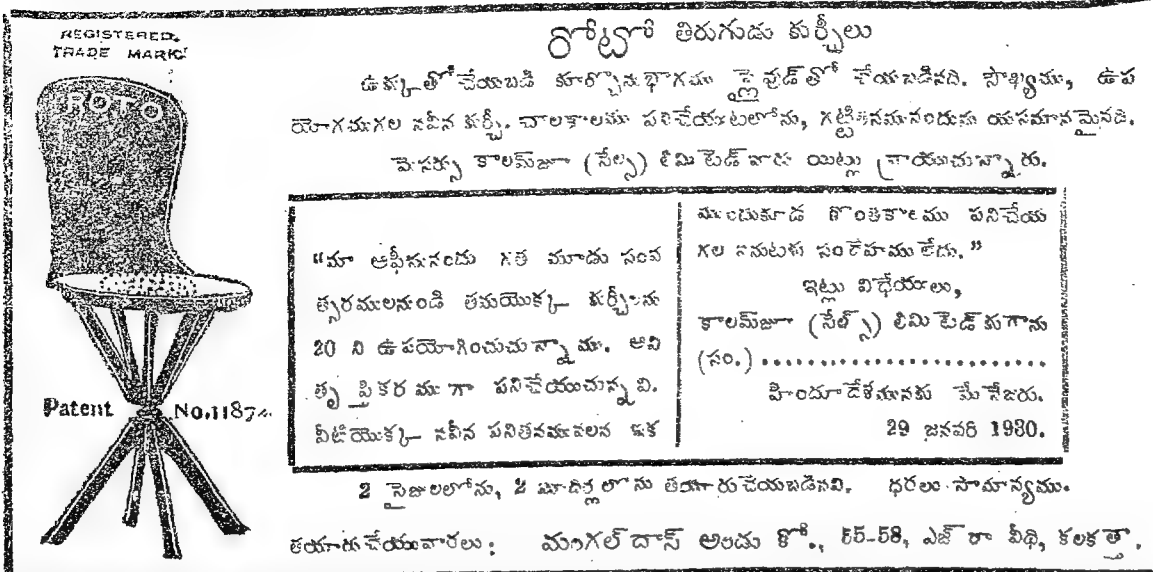 REGISTERED.
TRADE MARK.
ROTO
Patent No.1187
రోటో తిరుగుడు కుర్చీలు
ఉక్కుతో చేయబడి కూర్చొనుభాగము ప్లైవుడ్‌తో చేయబడినది. సౌఖ్యము, ఉప
యోగముగల నవీన కుర్చీ. చాలకాలము పనిచేయుటలోను, గట్టితనమునందును యసమానమైనది.
మెసర్సు కాలమ్‌జూ (సేల్సు) లిమిటెడ్ వారు యిట్లు వ్రాయుచున్నారు.
"మా ఆఫీసునందు గత మూడు సంవ
త్సరములనుండి తమయొక్క కుర్చీలను
20 ని ఉపయోగించుచున్నాము. అవి
తృప్తికరముగా పనిచేయుచున్నవి.
వీటియొక్క నవీన పనితనమువలన ఇక
ముందుకూడ కొంతకాలము పనిచేయ
గల ననుటకు సందేహము లేదు."
ఇట్లు విధేయులు,
కాలమ్‌జూ (సేల్స్) లిమిటెడ్ కుగాను
(సం.) ........................
హిందూదేశమునకు మేనేజరు.
29 జనవరి 1930.
2 సైజులలోను, 2 మాదిర్లలోను తయారుచేయబడినవి. ధరలు సామాన్యము.
తయారుచేయువారలు: మంగల్ దాస్ అండు కో., 55-58, ఎజ్రా వీధి, కలకత్తా.